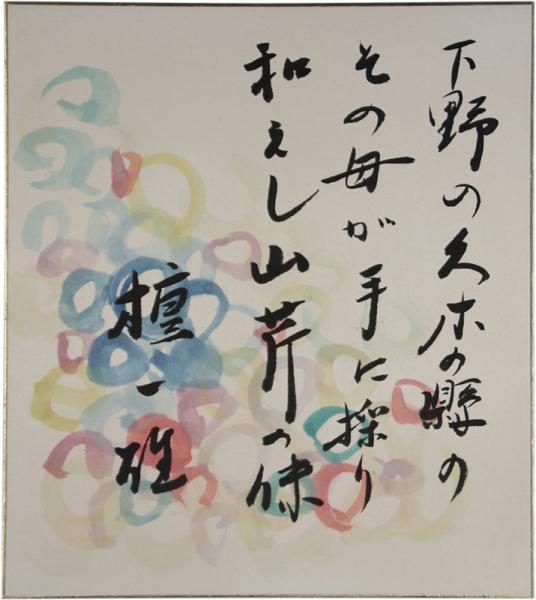 下野の久木の懸の
その母が手に採り
和えし山芹の味
檀一雄